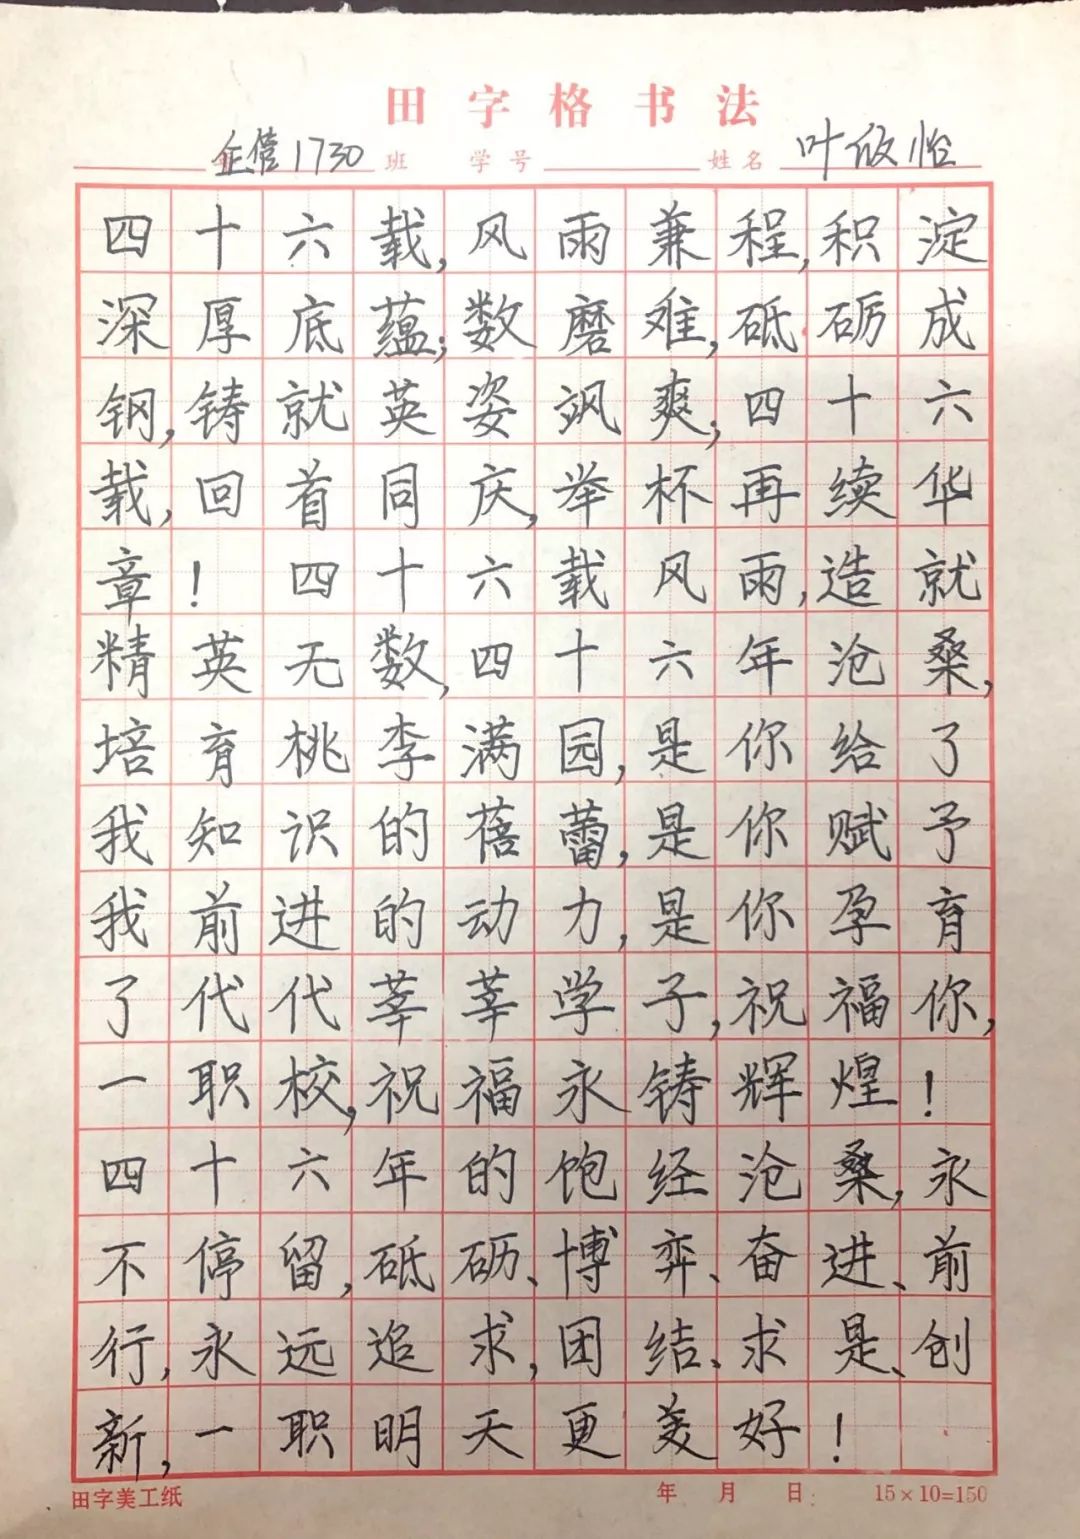 田字格书法
企管1730 班 学号 姓名 叶攸怡
四十六载,风雨兼程,积淀
深厚底蕴;数磨难,砥砺成
钢,铸就英姿飒爽,四十六
载,回首同庆,举杯再续华
章! 四十六载风雨,造就
精英无数,四十六年沧桑,
培育桃李满园,是你给了
我知识的蓓蕾,是你赋予
我前进的动力,是你孕育
了代代莘莘学子,祝福你,
一职校,祝福永铸辉煌!
四十六年的饱经沧桑,永
不停留,砥砺、博弈、奋进、前
行,永远追求,团结、求是、创
新,一职明天更美好!
田字美工纸 年 月 日: 15×10=150